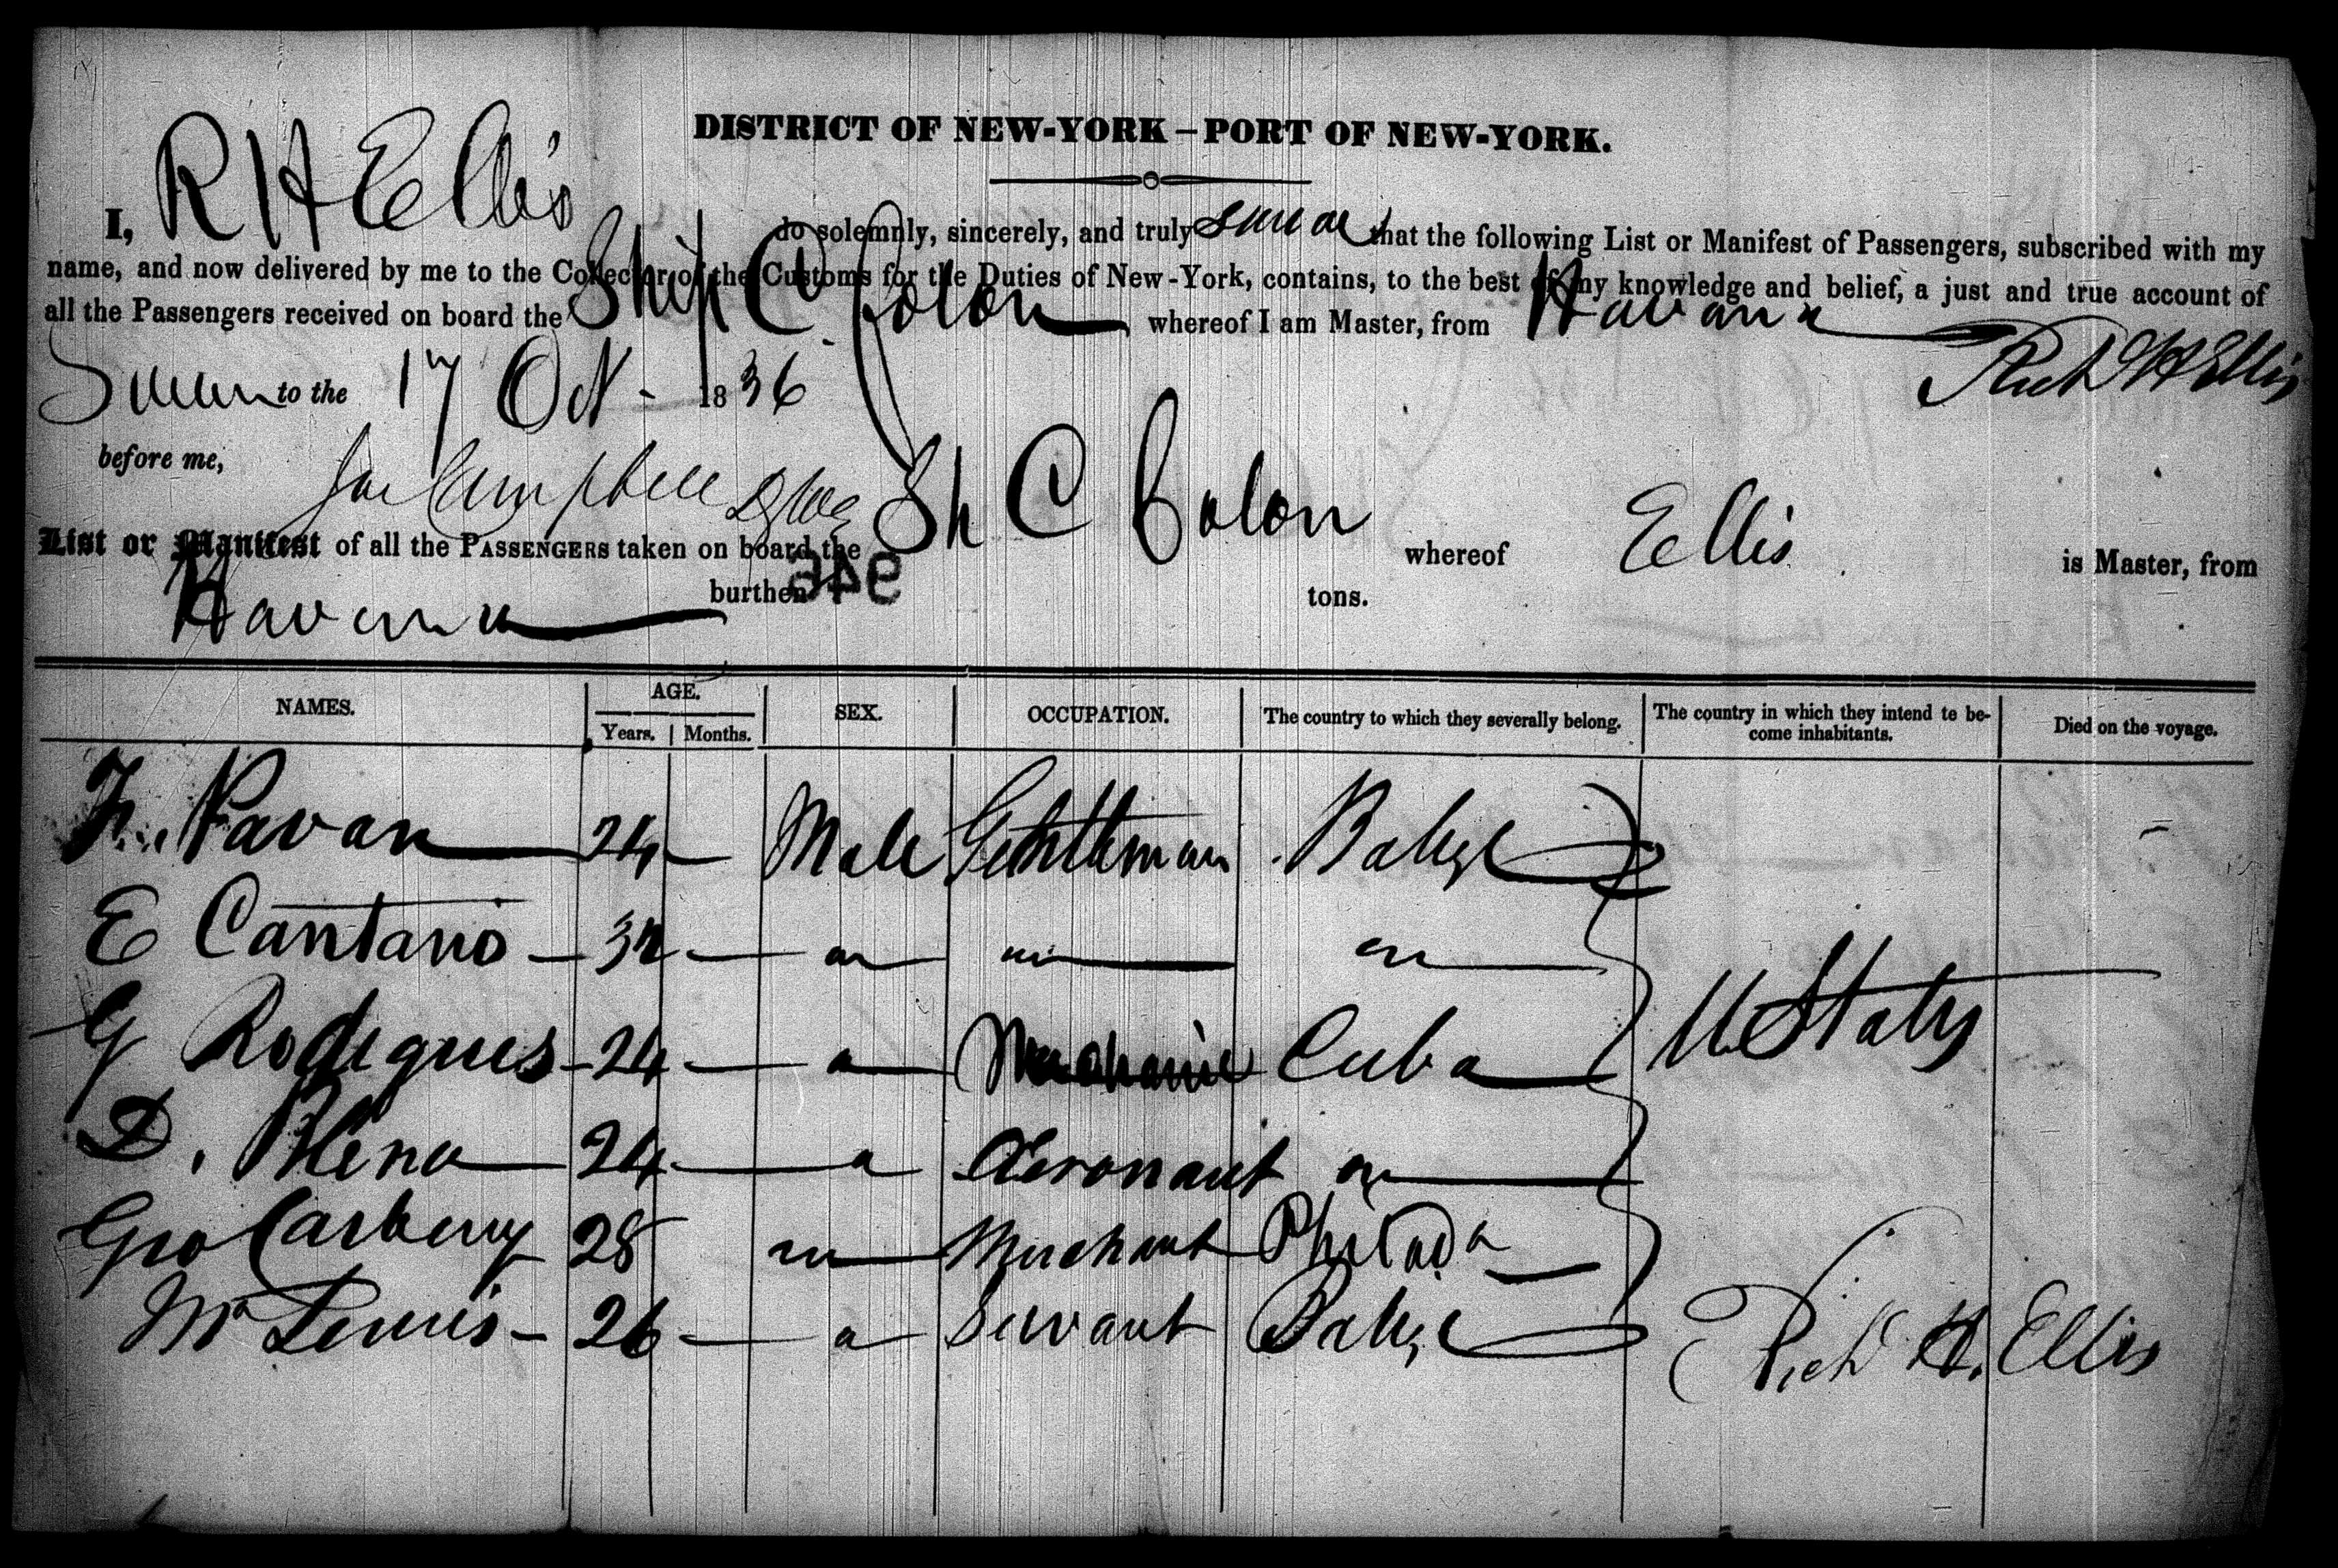 DISTRICT OF NEW-YORK – PORT OF NEW-YORK.
I, R H Ellis do solemnly, sincerely, and truly swear that the following List or Manifest of Passengers, subscribed with my
name, and now delivered by me to the Collector of the Customs for the Duties of New-York, contains, to the best of my knowledge and belief, a just and true account of
all the Passengers received on board the Ship C Colon whereof I am Master, from Havana
Sworn to the 17 Oct - 1836 Rich D H Ellis
before me, Campbell
List or Manifest of all the PASSENGERS taken on board the Sh C Colon whereof Ellis is Master, from
Havana burthen tons.
946
NAMES. AGE. SEX. OCCUPATION. The country to which they severally belong. The country in which they intend to become inhabitants. Died on the voyage.
Years. Months.
Navan 24 — Male Gentleman -
E Cantario — 32 — —
G Rodegues - 24 — Mechanic Cuba U States
D. — 24 — Aeronaut
Geo Carberry 28 Merchant Philada
Mr Lewis - 26 — Servant
Rich D H. Ellis